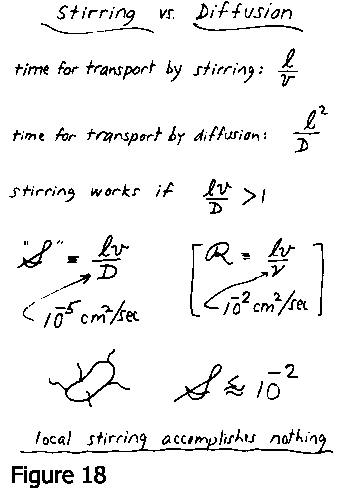 Stirring vs. Diffusion
time for transport by stirring: l/v
time for transport by diffusion: l²/D
stirring works if lv/D >1
"S" = lv/D [R = lv/ν]
10⁻⁵ cm²/sec 10⁻² cm²/sec
S ≲ 10⁻²
local stirring accomplishes nothing
Figure 18